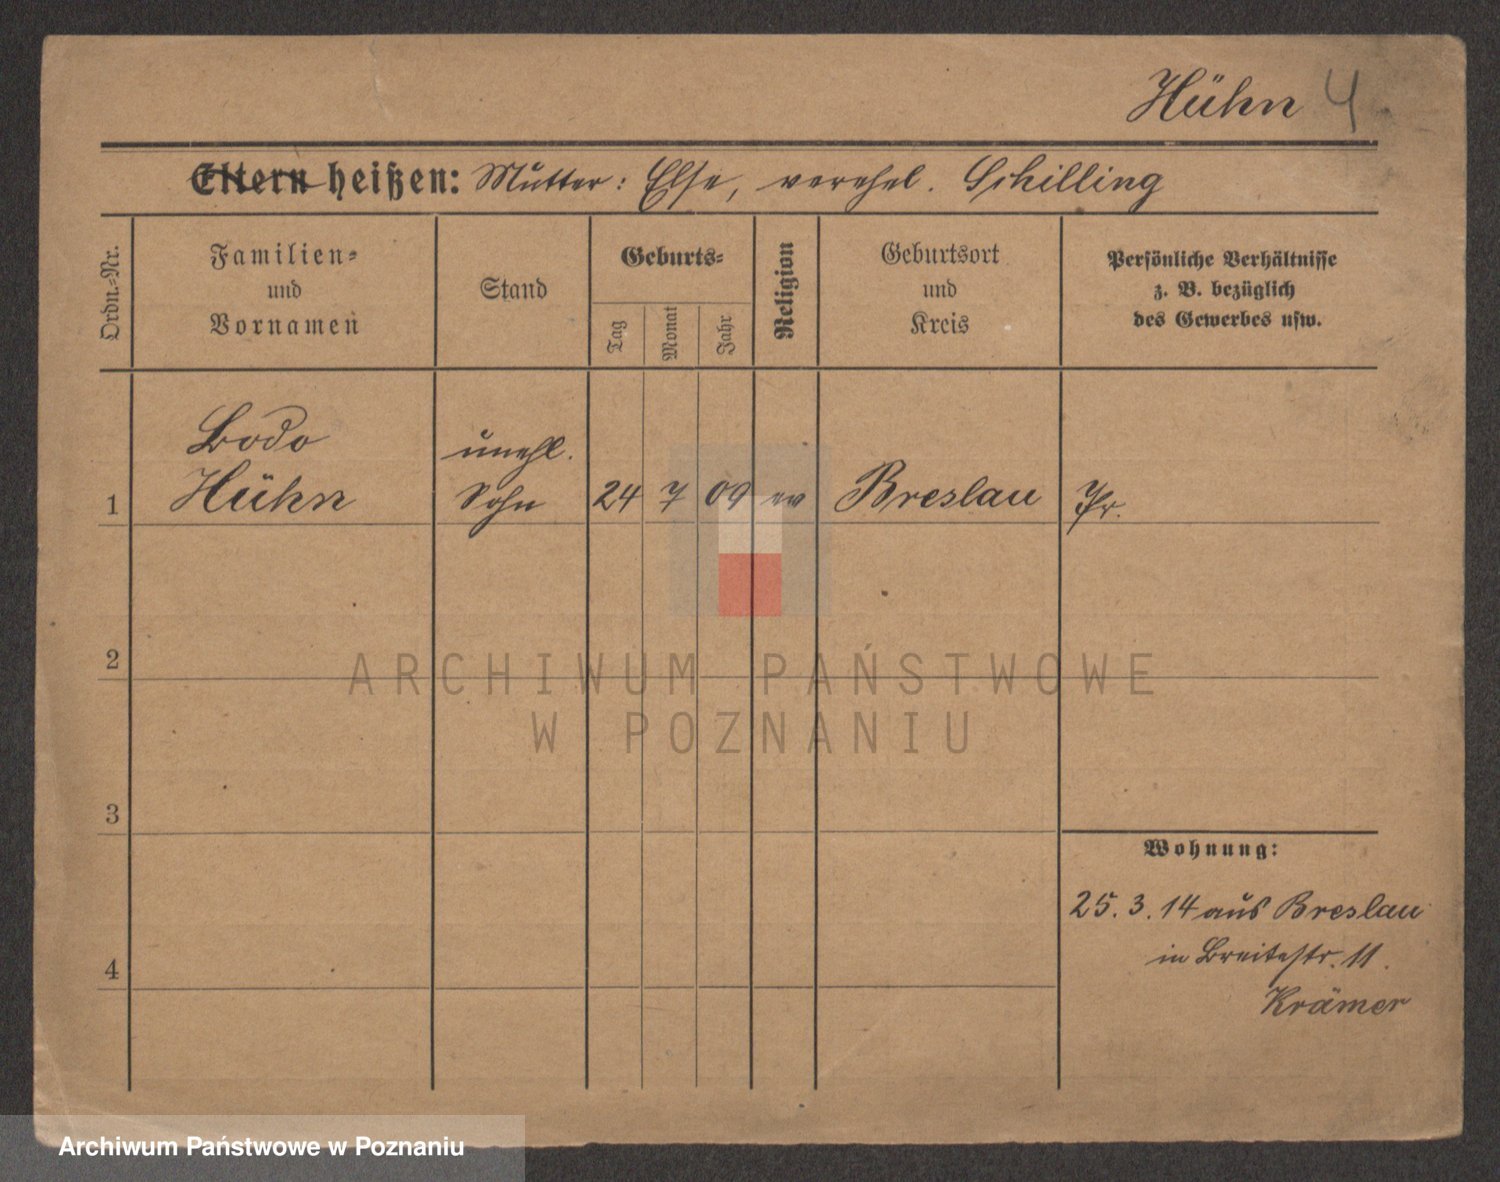 Hühn 4
Eltern heißen: Mutter: Else, verehel. Schilling
Ordn.-Nr.
Familien-
und
Vornamen
Stand
Geburts-
Tag
Monat
Jahr
Religion
Geburtsort
und
Kreis
Persönliche Verhältnisse
z. B. bezüglich
des Gewerbes usw.
Bodo unehl.
1 Hühn Sohn 24 7 09 ev Breslau Pr.
2
3
4
Wohnung:
25. 3. 14 aus Breslau
in Breitestr. 11.
Krämer
ARCHIWUM PAŃSTWOWE
W POZNANIU
Archiwum Państwowe w Poznaniu